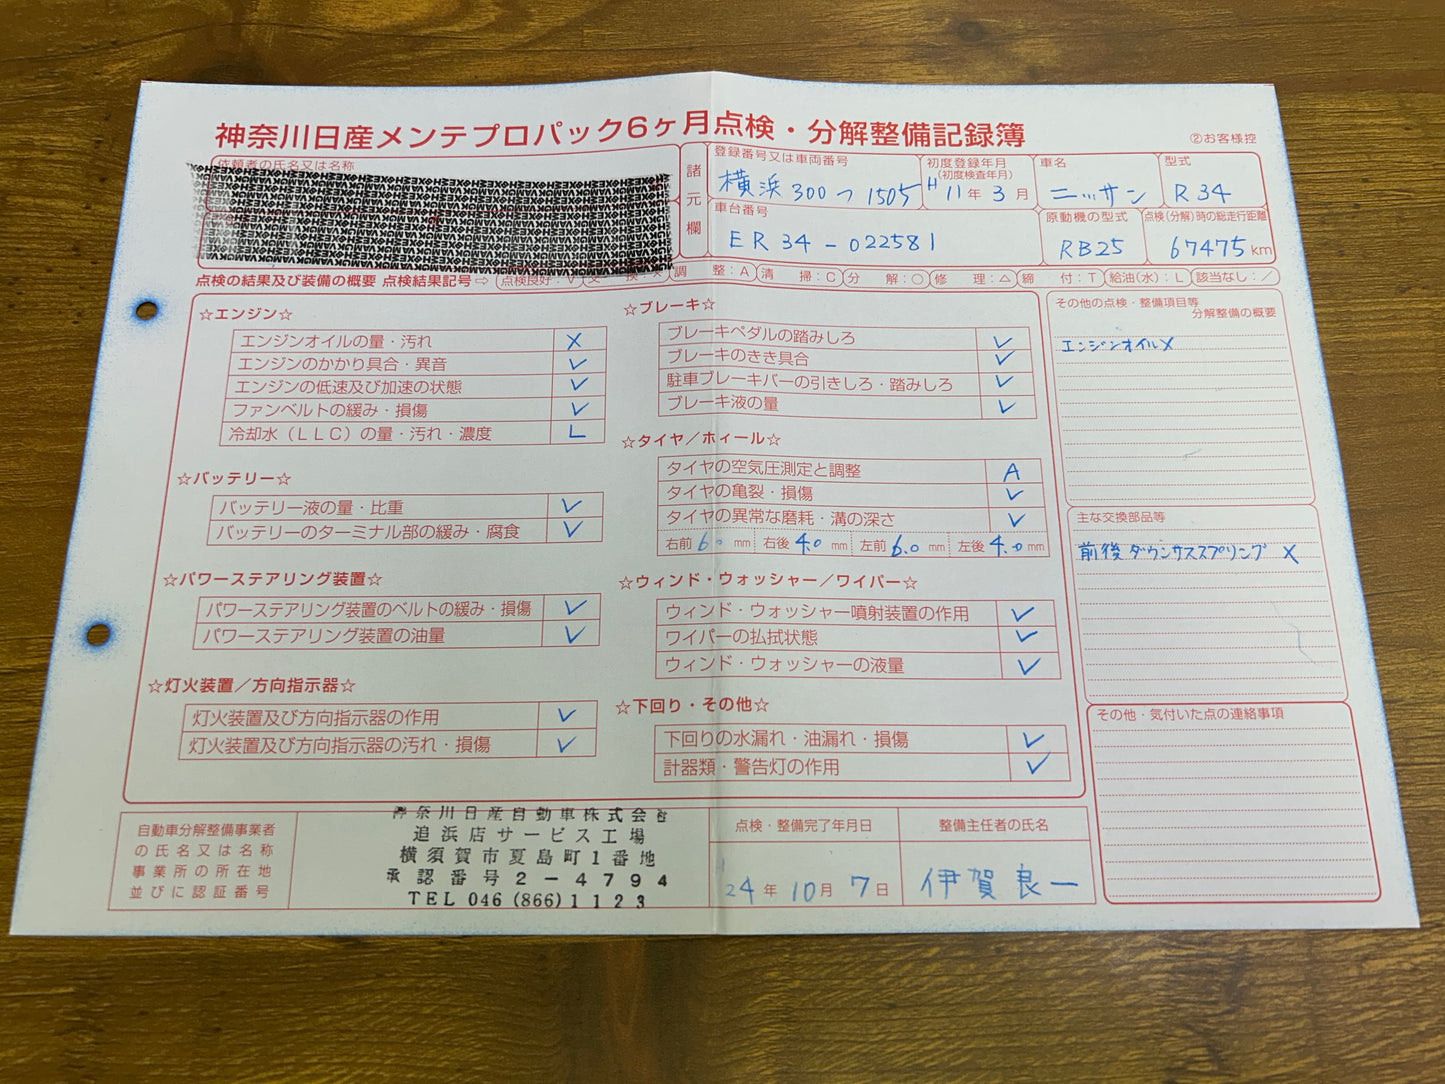 神奈川日産メンテプロパック6ヶ月点検・分解整備記録簿
②お客様控
依頼者の氏名又は名称
諸元欄
登録番号又は車両番号
横浜 300 つ 1505
初度登録年月
(初度検査年月)
H11年3月
車名
ニッサン
型式
R34
車台番号
ER34-022581
原動機の型式
RB25
点検(分解)時の総走行距離
67475km
点検の結果及び装備の概要 点検結果記号⇨ 点検良好:V 交換:× 調整:A 清掃:C 分解:○ 修理:△ 締付:T 給油(水):L 該当なし:／
☆エンジン☆
エンジンオイルの量・汚れ X
エンジンのかかり具合・異音 ✓
エンジンの低速及び加速の状態 ✓
ファンベルトの緩み・損傷 ✓
冷却水（LLC）の量・汚れ・濃度 L
☆バッテリー☆
バッテリー液の量・比重 ✓
バッテリーのターミナル部の緩み・腐食 ✓
☆パワーステアリング装置☆
パワーステアリング装置のベルトの緩み・損傷 ✓
パワーステアリング装置の油量 ✓
☆灯火装置／方向指示器☆
灯火装置及び方向指示器の作用 ✓
灯火装置及び方向指示器の汚れ・損傷 ✓
☆ブレーキ☆
ブレーキペダルの踏みしろ ✓
ブレーキのきき具合 ✓
駐車ブレーキバーの引きしろ・踏みしろ ✓
ブレーキ液の量 ✓
☆タイヤ／ホィール☆
タイヤの空気圧測定と調整 A
タイヤの亀裂・損傷 ✓
タイヤの異常な磨耗・溝の深さ ✓
右前 6.0 mm 右後 4.0 mm 左前 6.0 mm 左後 4.0 mm
☆ウィンド・ウォッシャー／ワイパー☆
ウィンド・ウォッシャー噴射装置の作用 ✓
ワイパーの払拭状態 ✓
ウィンド・ウォッシャーの液量 ✓
☆下回り・その他☆
下回りの水漏れ・油漏れ・損傷 ✓
計器類・警告灯の作用 ✓
その他の点検・整備項目等
分解整備の概要
エンジンオイルX
主な交換部品等
前後ダウンサススプリング X
その他・気付いた点の連絡事項
自動車分解整備事業者
の氏名又は名称
事業所の所在地
並びに認証番号
神奈川日産自動車株式会社
追浜店サービス工場
横須賀市夏島町1番地
承認番号2-4794
TEL 046 (866) 1123
点検・整備完了年月日
24年10月7日
整備主任者の氏名
伊賀良一